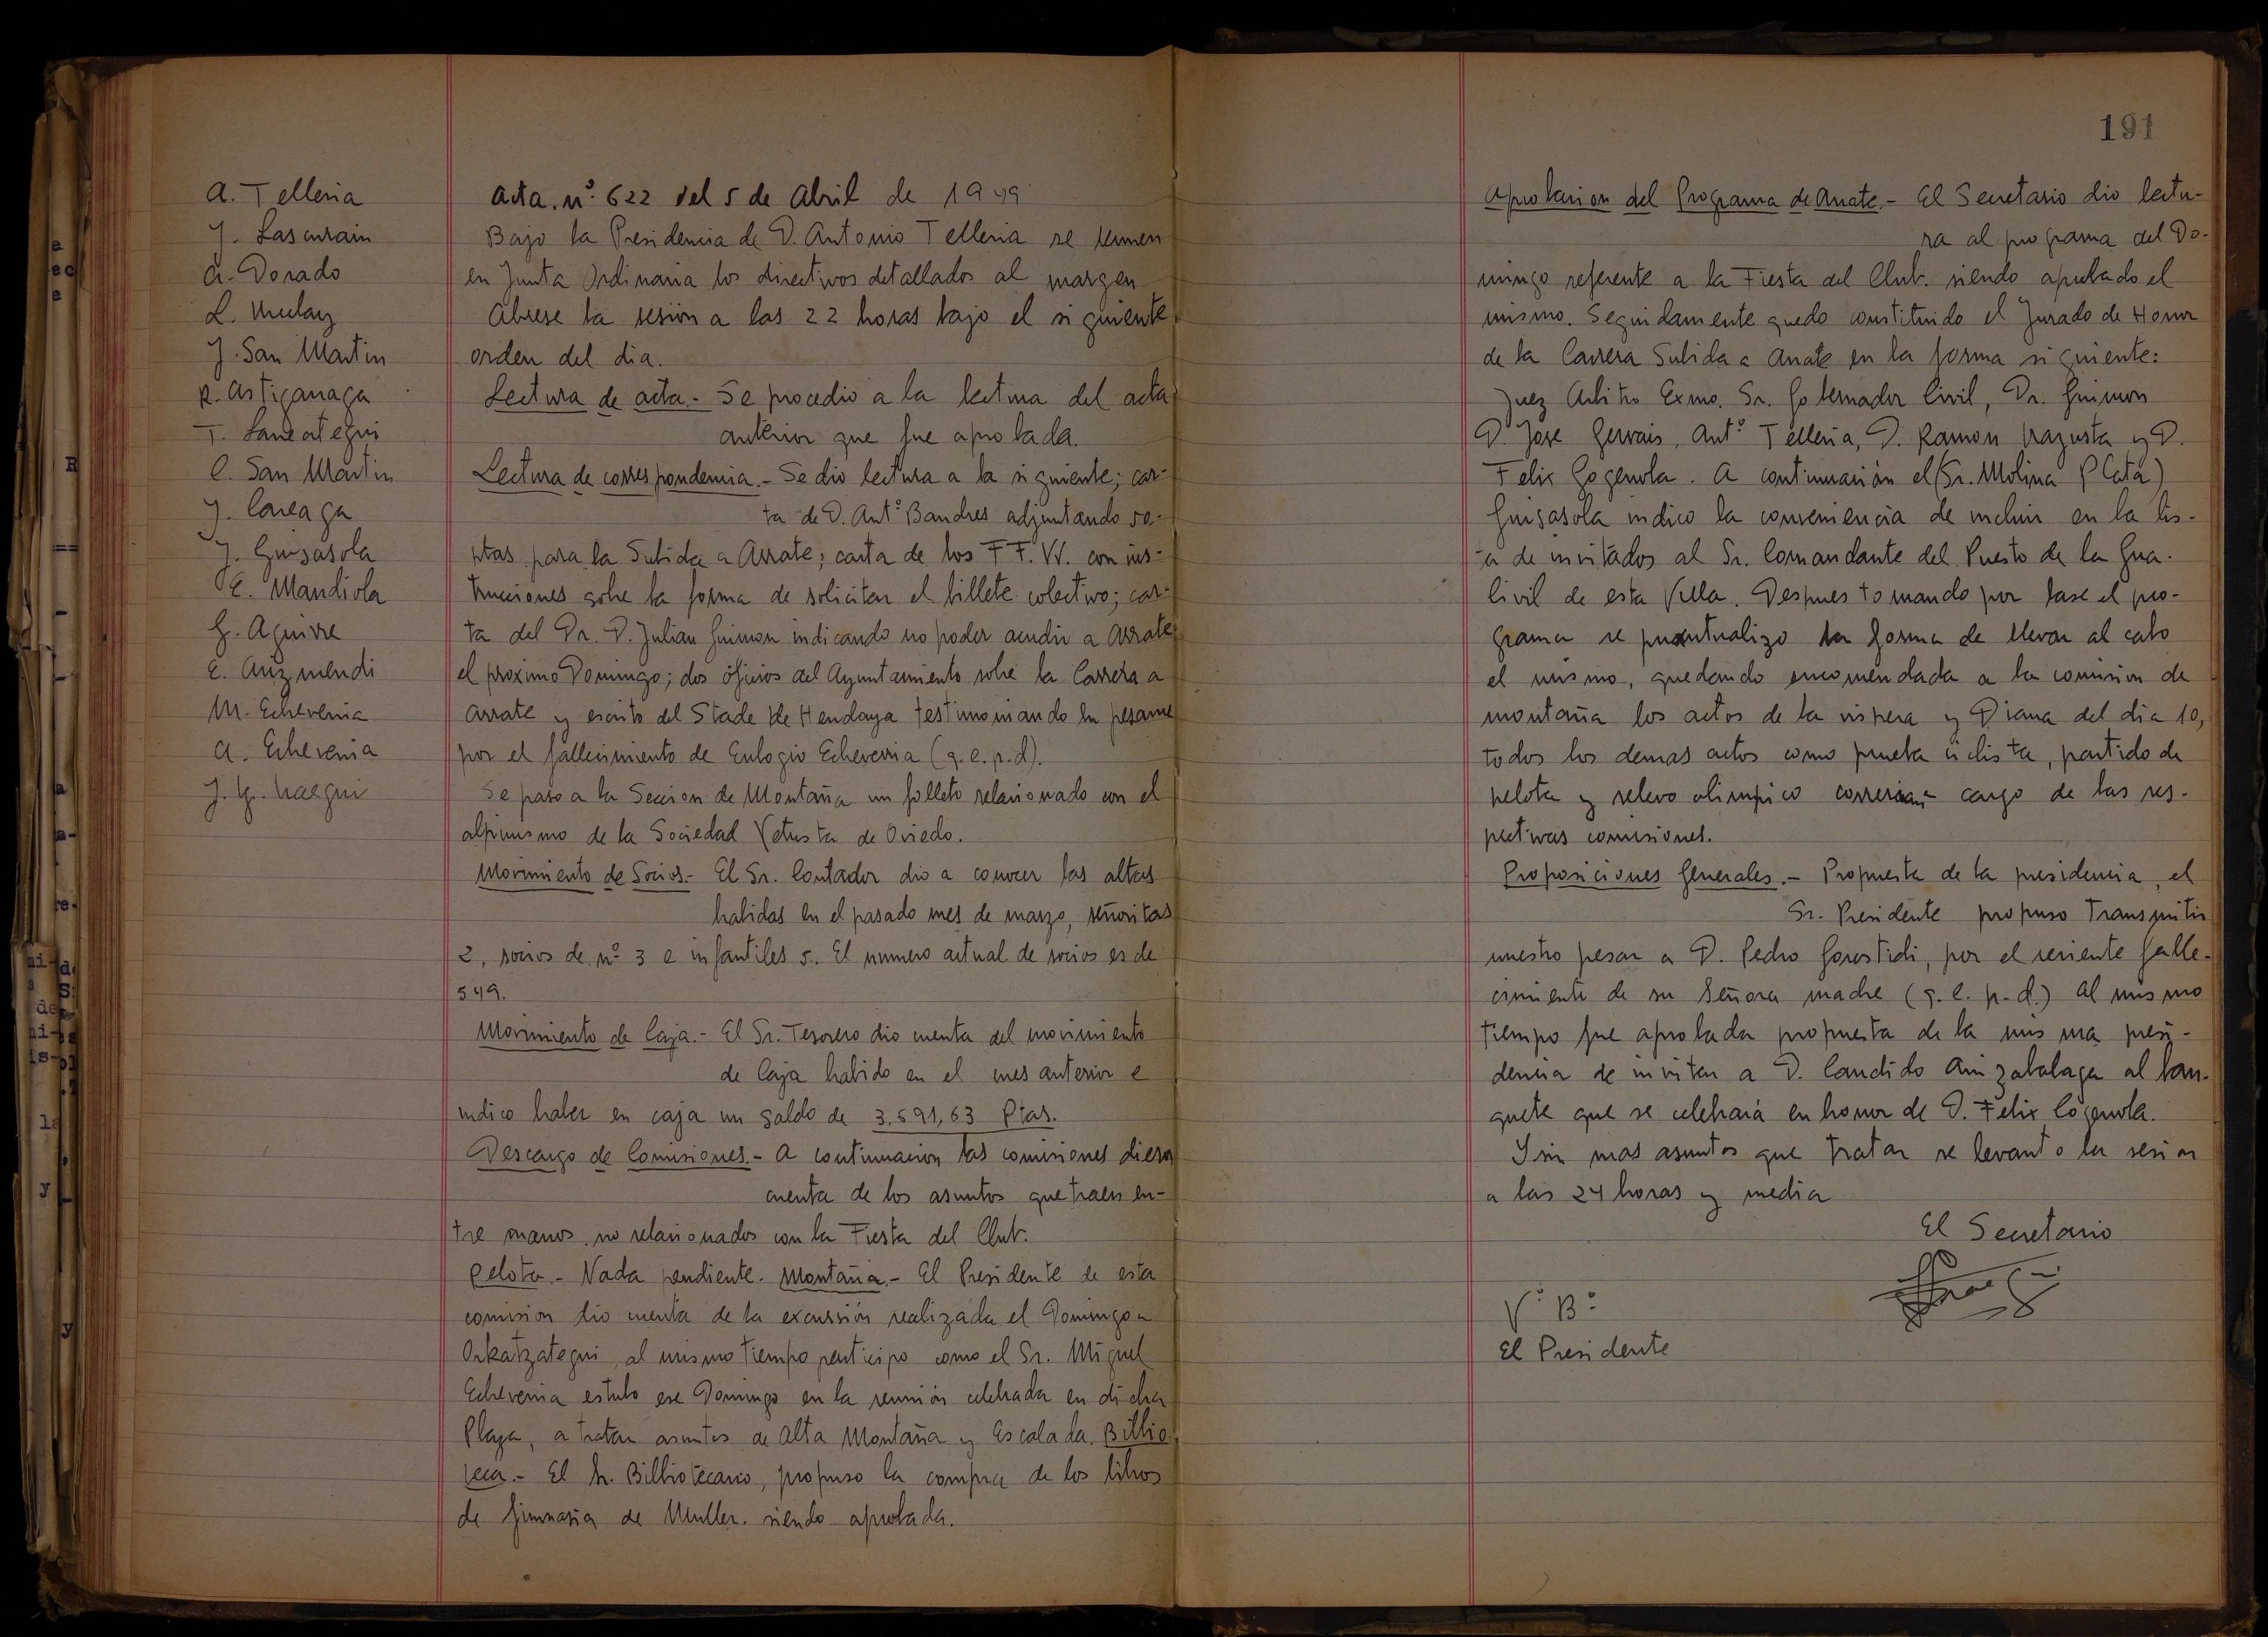 A. Telleria
J. Lascurain
A. Dorado
L. Mulay
J. San Martin
R. Astigarraga
T. Laneategui
C. San Martin
J. Careaga
J. Guisasola
E. Mandiola
G. Aguirre
E. Auzmendi
M. Echeverria
A. Echeverria
J. G.
Acta. nº 622 del 5 de Abril de 1949
Bajo la Presidencia de D. Antonio Telleria se reunen
en Junta Ordinaria los directivos detallados al margen
Abrese la sesión a las 22 horas bajo el siguiente
orden del dia.
Lectura de acta.- Se procedió a la lectura del acta
anterior que fue aprobada.
Lectura de correspondencia.- Se dio lectura a la siguiente; car-
ta de D. Antº Bandres adjuntando 50.-
ptas para la Subida a Arrate; carta de los F F. VV. con ins-
trucciones sobre la forma de solicitar el billete colectivo; car-
ta del Dr. D. Julian Guimon indicando no poder acudir a Arrate
el proximo Domingo; dos oficios del Ayuntamiento sobre la Carrera a
Arrate y escrito del Stade de Hendaya testimoniando su pesame
por el fallecimiento de Eulogio Echeverria (q.e.p.d).
Se paso a la Seccion de Montaña un folleto relacionado con el
alpinismo de la Sociedad Vetusta de Oviedo.
Movimiento de Socios.- El Sr. Contador dio a conocer las altas
habidas en el pasado mes de marzo, señoritas
2, socios de nº 3 e infantiles 5. El numero actual de socios es de
549.
Movimiento de Caja.- El Sr. Tesorero dio cuenta del movimiento
de Caja habido en el mes anterior e
indico haber en caja un saldo de 3.591,63 Ptas.
Descargo de Comisiones.- A continuacion las comisiones dieron
cuenta de los asuntos que traen en-
tre manos no relacionados con la Fiesta del Club.
Pelota.- Nada pendiente. Montaña.- El Presidente de esta
comision dio cuenta de la excursión realizada el Domingo a
Orkatzategui, al mismo tiempo participo como el Sr. Miguel
Echeverria estubo ese Domingo en la reunión celebrada en dicha
Plaza, a tratar asuntos de Alta Montaña y Escalada. Billio-
teca.- El Sr. Billiotecario, propuso la compra de los libros
de Gimnasia de Muller. siendo aprobada.
191
Aprobacion del Programa de Arrate.- El Secretario dio lectu-
ra al programa del Do-
mingo referente a la Fiesta del Club. siendo aprobado el
mismo. Seguidamente quedo constituido el Jurado de Honor
de la Carrera Subida a Arrate en la forma siguiente:
Juez Arbitro Exmo. Sr. Gobernador Civil, Dr. Guimon
D. Jose Gervais, Antº Telleria, D. Ramon Irazusta y D.
Felix Gogenola. A continuación el (Sr. Molina Plata)
Guisasola indico la conveniencia de incluir en la lis-
ta de invitados al Sr. Comandante del Puesto de la Gua.
Civil de esta Villa. Despues tomando por base el pro-
grama se puntualizo la forma de llevar al cabo
el mismo, quedando encomendada a la comision de
montaña los actos de la vispera y Diana del dia 10,
todos los demas actos como prueba ciclista, partido de
pelota y relevo olimpico correrian a cargo de las res-
pectivas comisiones.
Proposiciones Generales.- Propuesta de la presidencia, el
Sr. Presidente propuso Transmitir
nuestro pesar a D. Pedro Gorostidi, por el reciente falle-
cimiento de su Señora madre (q.e.p.d.) Al mismo
tiempo fue aprobada propuesta de la misma presi-
dencia de invitar a D. Candido Arrizabalaga al ban-
quete que se celebrará en honor de D. Felix Cogenola.
Y sin mas asuntos que tratar se levanto la sesion
a las 24 horas y media
El Secretario
Vº Bº
El Presidente